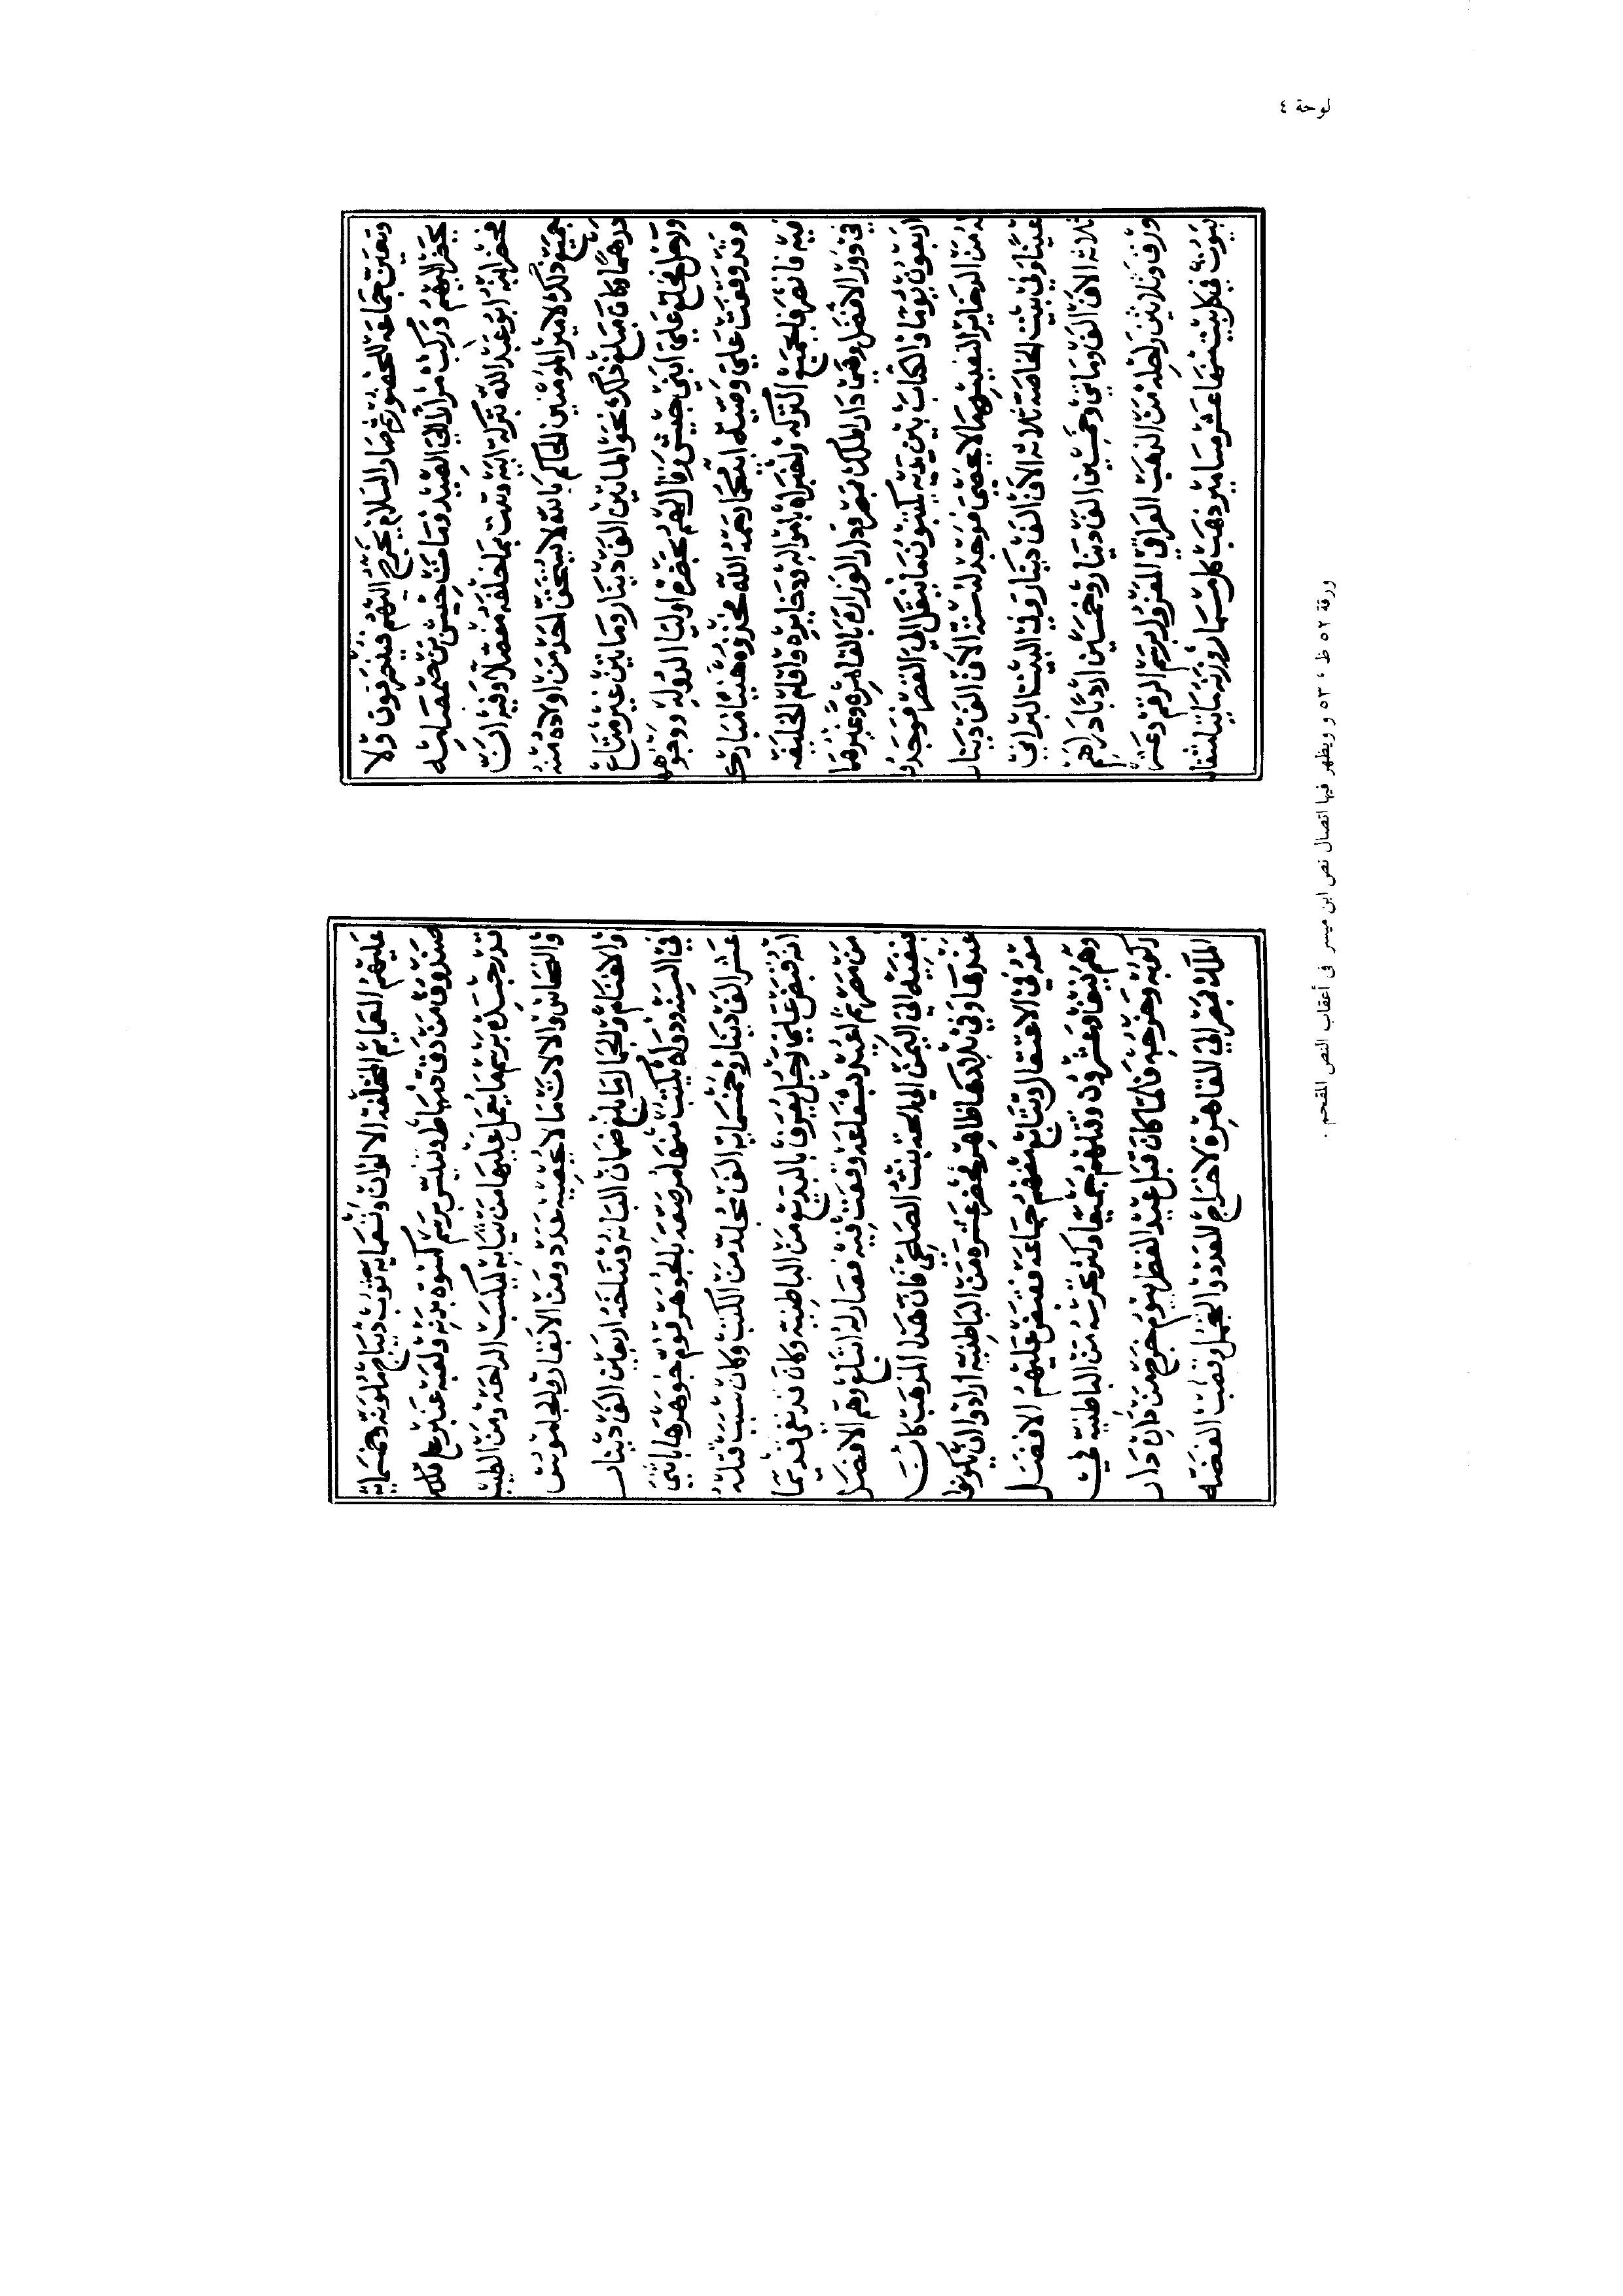 لوحة ٤
وتعين جماعه للحضور ثم صار السلام يخرج اليهم فينصرفون ولا
يحضر اليهم وركب مرارا الي الصيد ومات جيش بن صمصامه
فحضر ابنه ابو عبد الله بتركة ابيه وثبت بما خلفه مفصلا وفيه ان
جميع ذلك لامير المومنين الحاكم بالله لا يستحق احد من اولاده منه
درهما وكان مبلغ ذلك نحو المايتين الف دينار وما بين عين ومتاع
فخلع علي ابني جيش وقال لهم بحضرة اوليا الدوله ووجوهها
وقد وقفت علي وصيه ابيكما رحمه الله فخذوه هنيا مباركا
فيه فانصرفا بجميع التركه باموالـه وذخايره واقام الخليفه
في دور الافضل وهي دار الملك بمصر ودار الوزارة بالقاهرة وغيرهما
اربعون يوما والكتاب بين يديه يكتبون ما ينقل الي القصر فوجد له
من الدخاير النفيسه ما لا يحصي فوجد له ستة الاف الف دينار
عينا وفي بيت الخاصه ثلاثه الاف الف دينار وفي البيت البراني
ثلاثه الاف الف ومايتي وخمسين الف دينار وخمسين اردبا دراهم
ورق وثلاثين راحله من الذهب العراقي المغزول برسم الرقم وعشر
بيوت في كل بيت منها عشر مسامير ذهب كل مسمار وزنه مايتا مثقال
عليهم العمايم المختلفه الالوان وتسعمايه ثوب ديباج ملونه وخمسمايه
صندوق من دق دمياط وتنيس برسم كسوة بدنه ولعبه عنبر علي
قدر جسده برسم ما يعمل عليها من ثيابه ليكتسب الرايحه ومن الطيب
والنحاس والالات ما لا يحصيه عدد ومن الابقار والجاموس
والاغنام والجمال ما بلغ ضمان البانه ونتاجه اربعين الف دينار
في السنه ودواه يكتب منها مرصعه بالجوهر قوم جوهرها باثني
عشر الف دينار وخمسمايه الف مجلد من الكتب وكان سبب قتله
انه قبض علي رجل يعرف بالبديع من الباطنيه وكان قد نفي قديما
من مصر ثم اعيد بشفاعه وقعت فيه فصار له اتباع وهم الافضل
بنفيه الي اليمن الي الحره بنت الصليحي فان هذا المذهب كان
عندها وفي بلادها ظاهر فحضر عشره من الباطنيه ارادوا ان يكونوا
معه في الاعتقال وتتابع منهم جماعه فقبض عليهم الافضل
وهم نيف وعشرون وقتلهم جميعا وكثر تحرسه من الباطنيه في
ركوبه وخروجه فلما كان قبل عيد الفطر بيوم خرج من دار
الملك بمصر الي القاهرة لاخراج العدد والتجمل وقصب الفضه
ورقة ٥٢ ظ ، ٥٣ و ويظهر فيها اتصال نص ابن ميسر فى أعقاب النص المقحم .